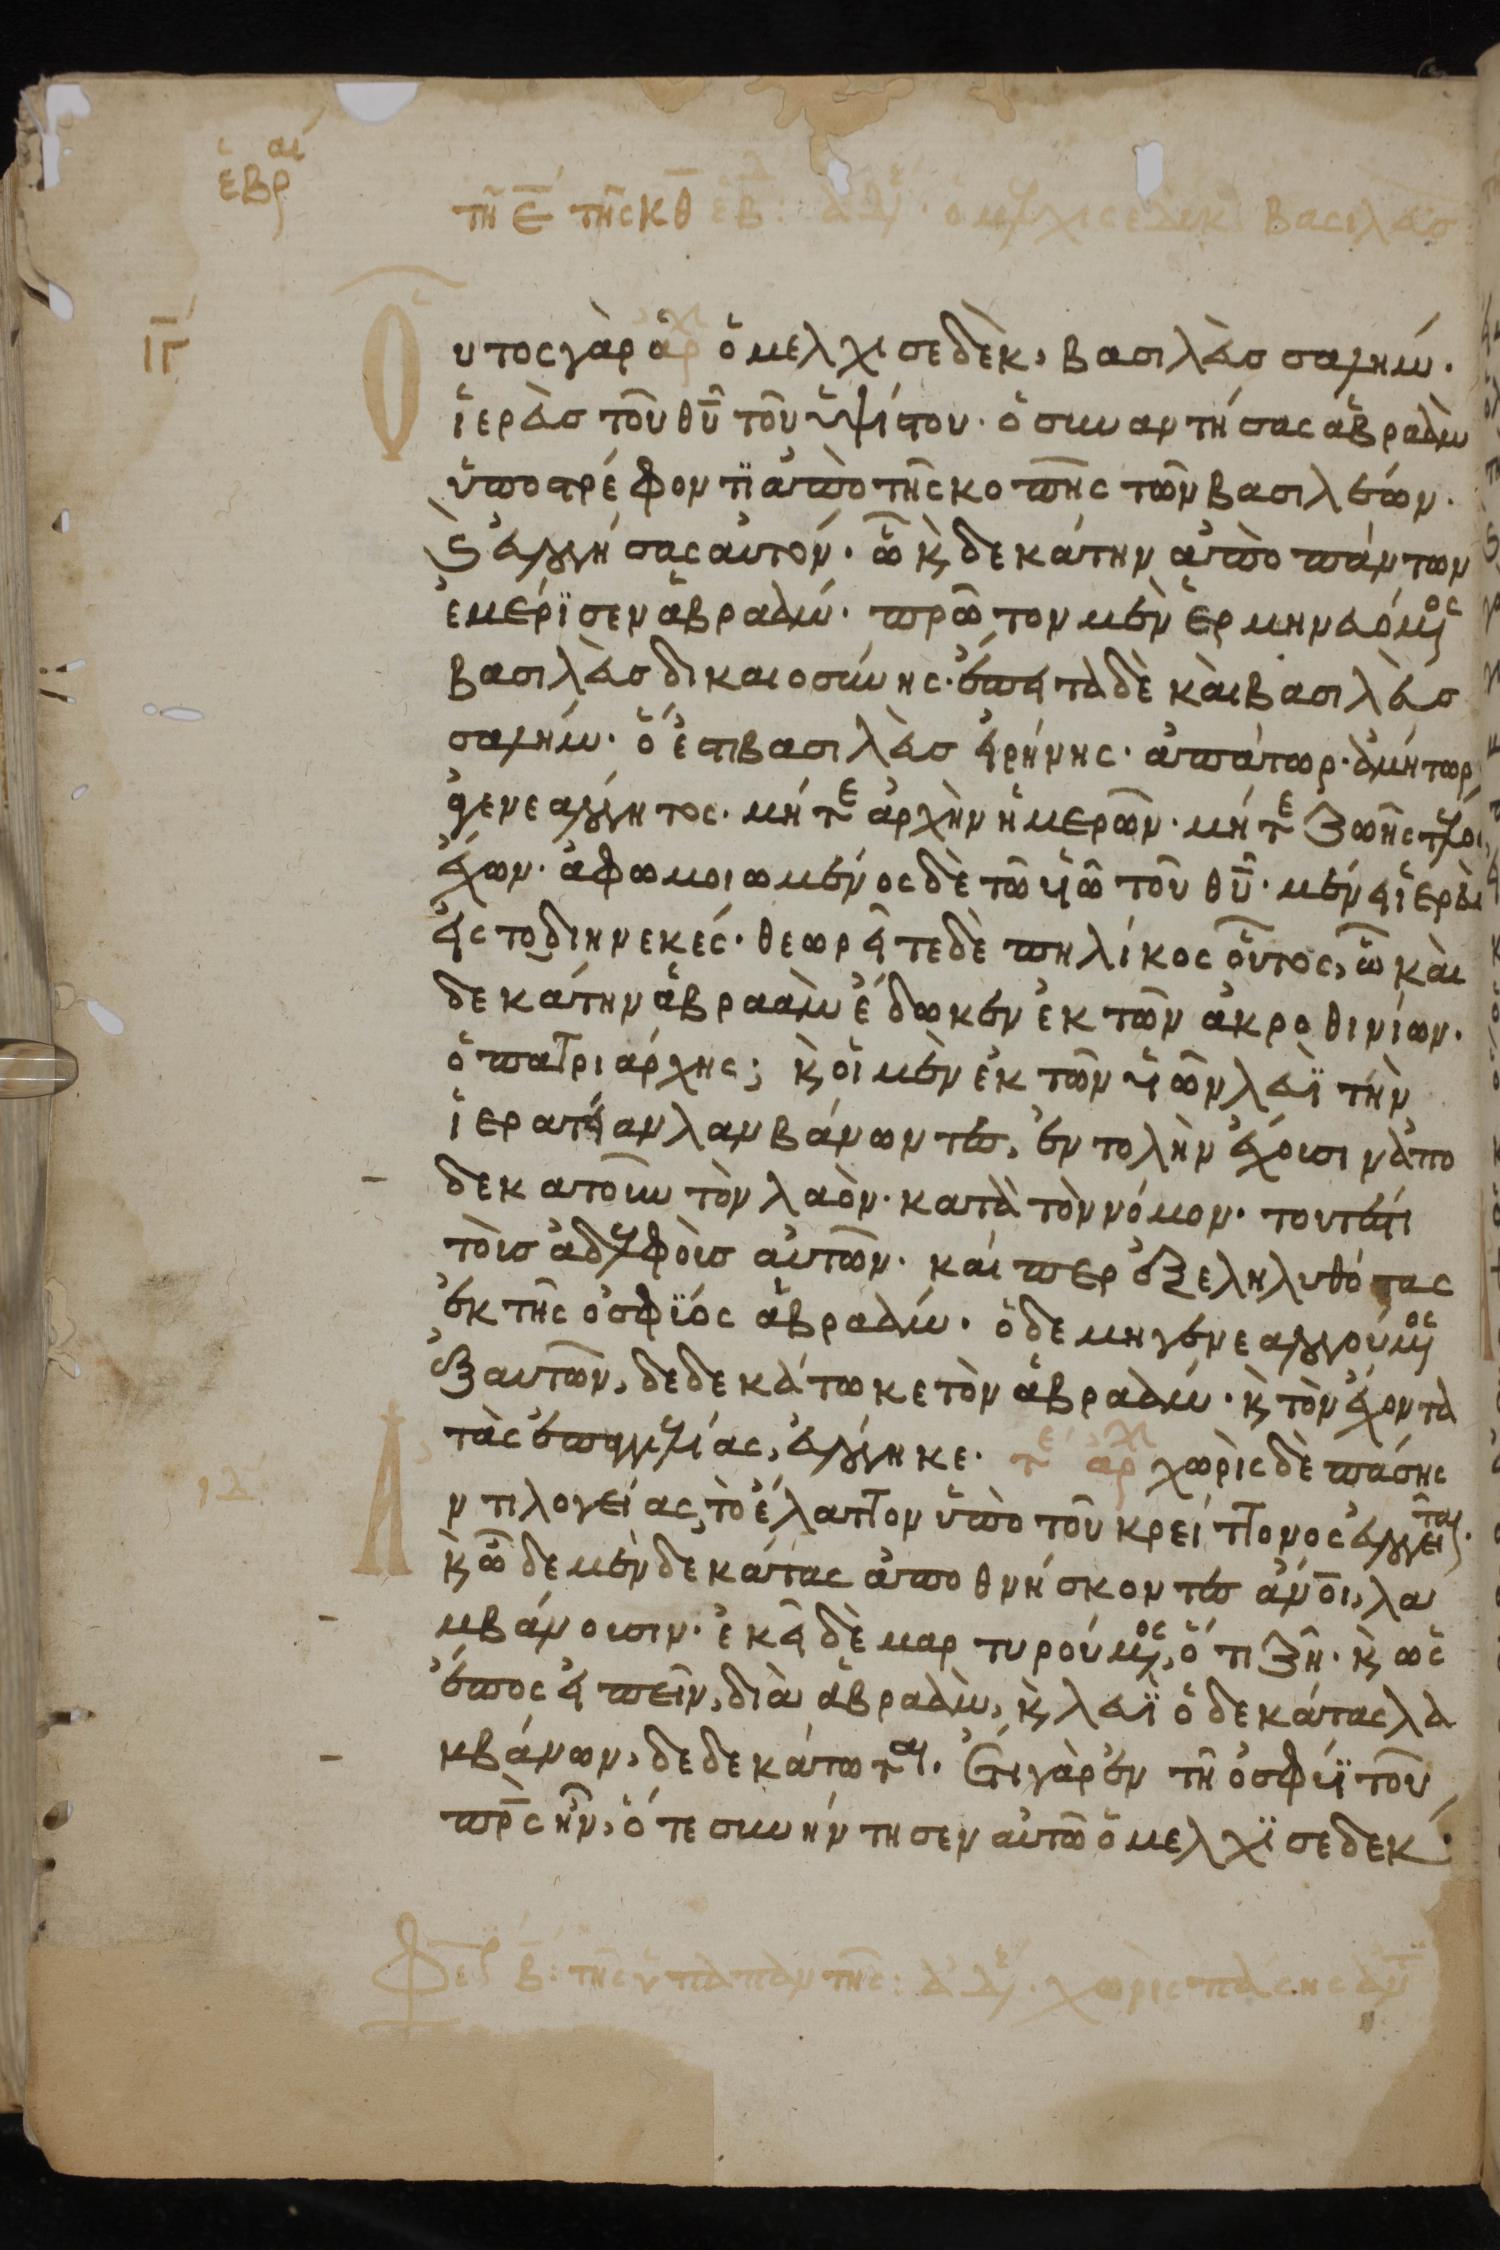 ἑβραι
τῇ ε τῆς κθ ἑβ: ἀδελ. ὁ μελχισεδεκ βασιλεὺσ
ιγ
Οὗτος γὰρ ἀρχ ὁ μελχισεδὲκ, βασιλεὺσ σαλήμ.
ἱερεὺσ τοῦ θῦ τοῦ ὑψίστου. ὁ συναντήσας ἁβραὰμ
ὑποστρέφοντϊ ἀπὸ τῆς κοπῆς τῶν βασιλέων.
ϗ εὐλογήσας αὐτόν. ὧ ϗ δεκάτην ἀπὸ πάντων
ἐμέρϊσεν ἁβραάμ. πρῶτον μὲν ἑρμηνευόμος
βασιλεὺσ δικαιοσύνης. ἔπειτα δὲ καὶ βασιλεὺσ
σαλήμ. ὅ ἐστι βασιλεὺσ εἰρήνης. ἀπάτωρ. ἀμήτωρ
ἀγενεαλόγητος. μήτε ἀρχὴν ἡμερῶν. μήτε ζωῆς τέλος
ἔχων. ἀφωμοιωμένος δὲ τῶ υἱῶ τοῦ θῦ. μένει ἱερεὺς
εἰς το διηνεκές. θεωρεῖτε δὲ πηλίκος οὗτος, ὧ καὶ
δεκάτην ἁβραὰμ ἔδωκεν ἐκ τῶν ἀκροθινίων.
ὁ πατριάρχης; ϗ οἱ μὲν ἐκ τῶν υἱῶν λευϊ τὴν
ἱερατείαν λαμβάνωντες, ἐντολὴν ἔχουσιν ἀπο
δεκατοῦν τὸν λαὸν. κατὰ τὸν νόμον. τουτέστι
τοὺσ ἀδελφοὺσ αὐτῶν. καίπερ ἐξεληλυθότας
ἐκ τῆς ὀσφϋός ἁβραάμ. ὁ δε μη γενεαλογούμος
ἐξ αυτῶν, δεδεκάτωκε τὸν ἁβραάμ. ϗ τὸν ἔχοντα
τὰς ἐπαγγελίας, εὐλόγηκε. τε ἀρχ χωρὶς δὲ πάσης
ιδ
Αντιλογείας, τὸ ἔλαττον ὑπὸ τοῦ κρείττονος εὐλογεῖται.
ϗ ὧδε μὲν δεκάτας ἀποθνήσκοντες ἀνοι, λα
μβάνουσιν. ἐκεῖ δὲ μαρτυρούμος, ὅτι ζῆ. ϗ ως
ἔπος εἰπεῖν, διὰ ἁβραὰμ, ϗ λευϊ ὁ δεκάτας λα
μβάνων, δεδεκάτωται. ἔτι γὰρ ἐν τῆ ὀσφύϊ τοῦ
πρς ἦν, ὅτε συνήντησεν αὐτῶ ὁ μελχϊσεδεκ.
β: τῆς ὑπαπαντῆς: ἀδελ. χωρὶς πάσης ἀντ